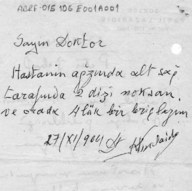 AGRF 01B 106 ED01A001
Sayın Doktor
Hastanin ağzında alt sağ
tarafında 2 dizi noksan.
ve orada 4 lük bir
27/XI/901